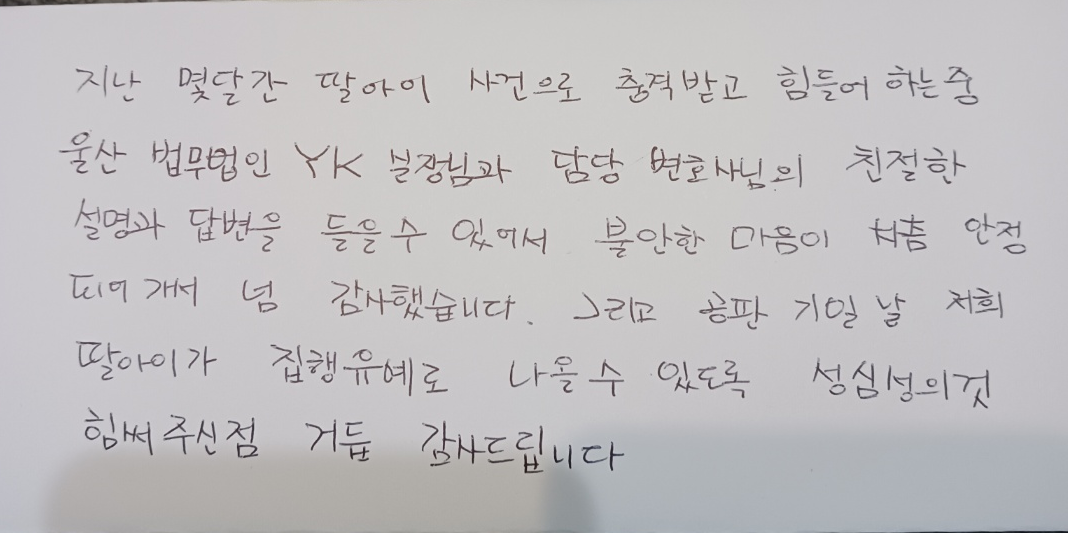 지난 몇달간 딸아이 사건으로 충격받고 힘들어 하는중
울산 법무법인 YK 실장님과 담당 변호사님의 친절한
설명과 답변을 들을수 있어서 불안한 마음이 차츰 안정
되어 가서 넘 감사했습니다. 그리고 공판 기일 날 저희
딸아이가 집행유예로 나올 수 있도록 성심성의것
힘써 주신점 거듭 감사드립니다